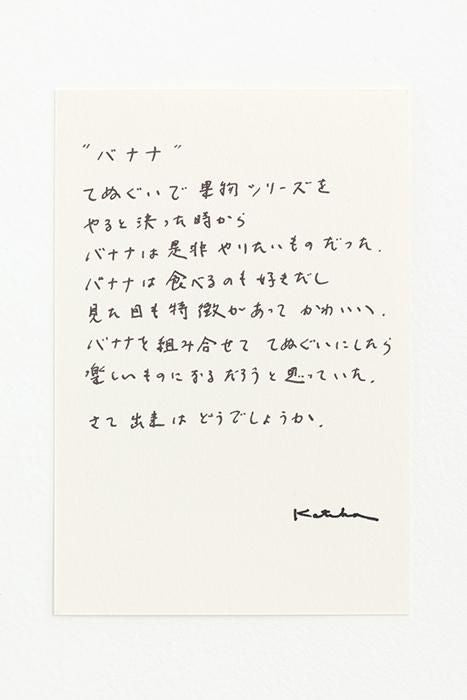 "バナナ"
てぬぐいで 果物シリーズを
やると決った時から
バナナは是非やりたいものだった.
バナナは食べるのも好きだし
見た目も特徴があって かわいい.
バナナを組み合せて てぬぐいにしたら
楽しいものになるだろうと思っていた.
さて 出来はどうでしょうか.